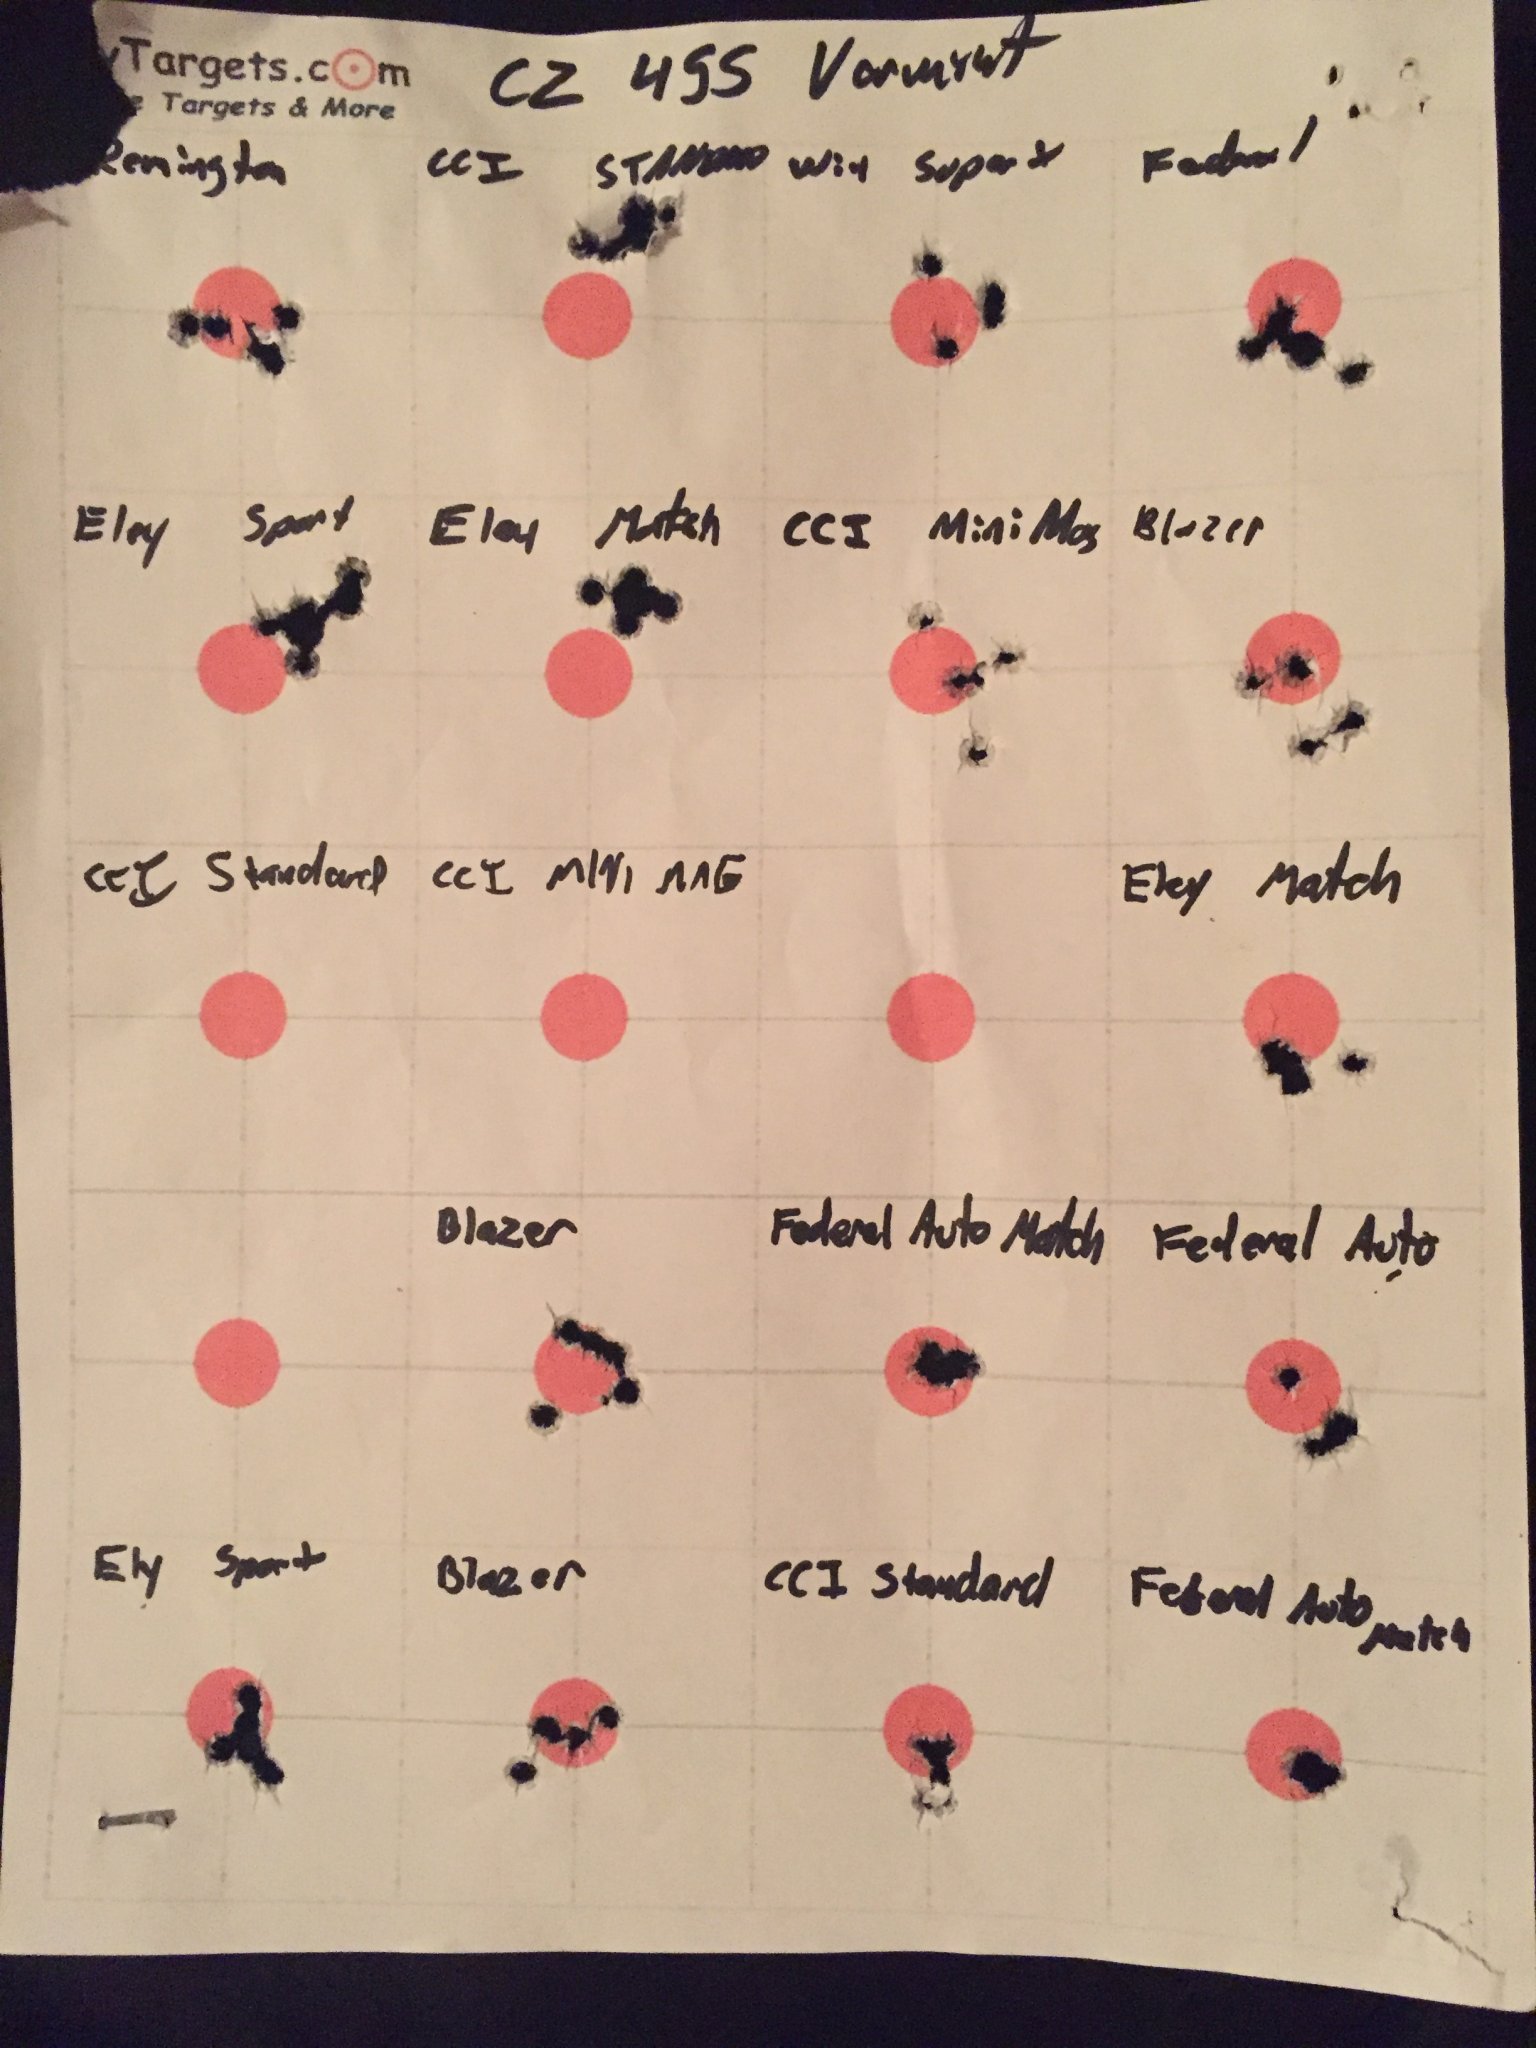 yTargets.com
e Targets & More
CZ 455 Varmint
Remington CCI STANDARD Win Super X Federal
Eley Sport Eley Match CCI Mini Mag Blazer
CCI Standard CCI MINI MAG Eley Match
Blazer Federal Auto Match Federal Auto
Ely Sport Blazer CCI Standard Federal Auto Match